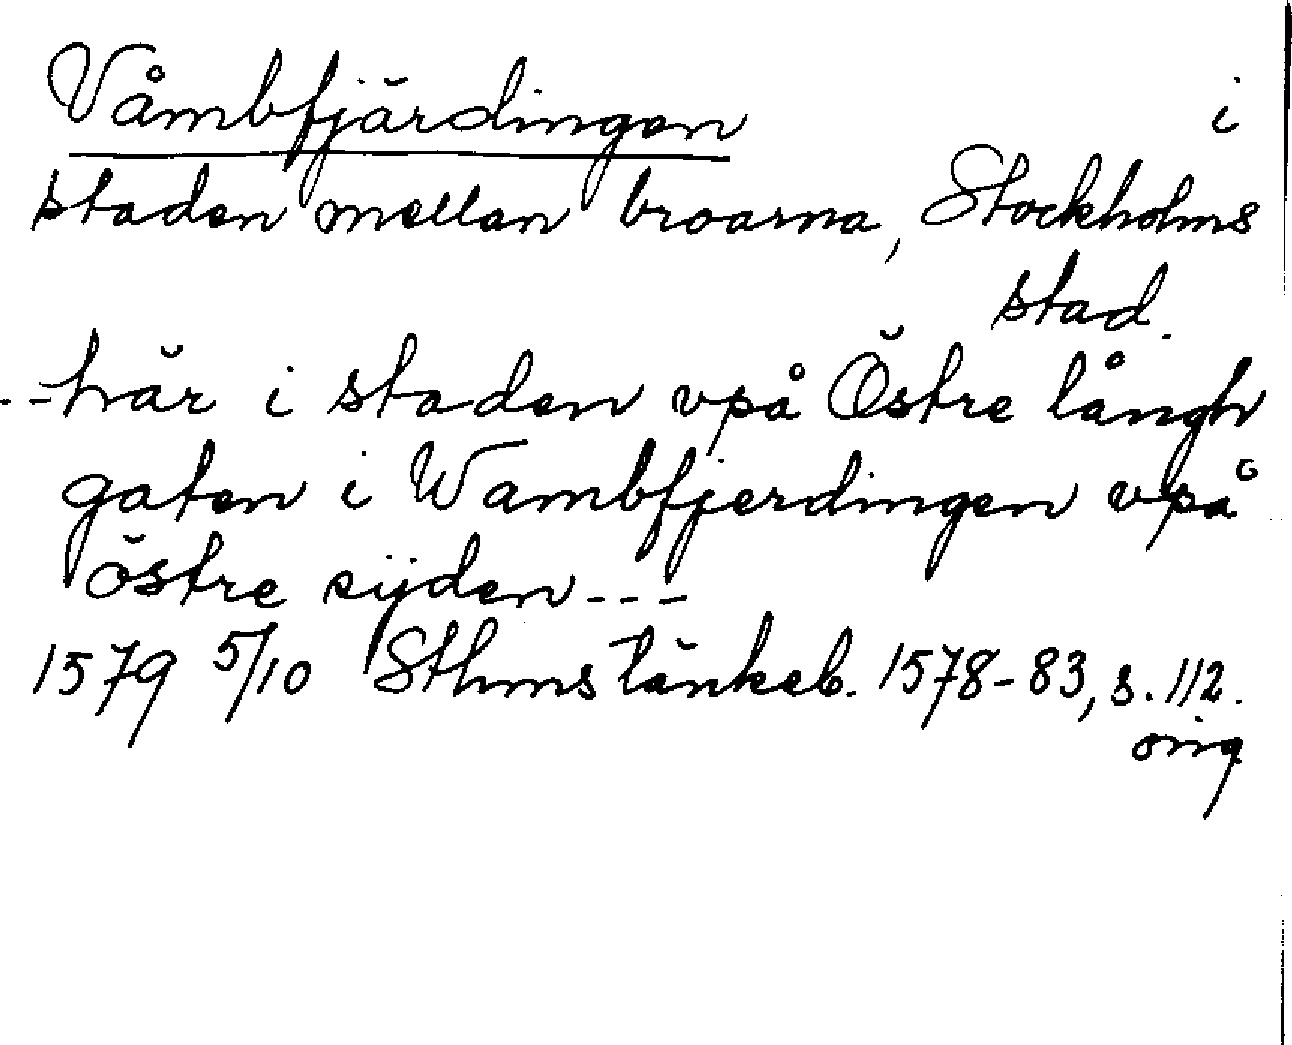 Våmbfjärdingen i
staden mellan broarna, Stockholms
stad.
--här i staden vpå Östre långh
gaten i Wambfjerdingen vpå
östre sijden---
1579 5/10 Sthms tänkeb. 1578-83, s. 112.
orig